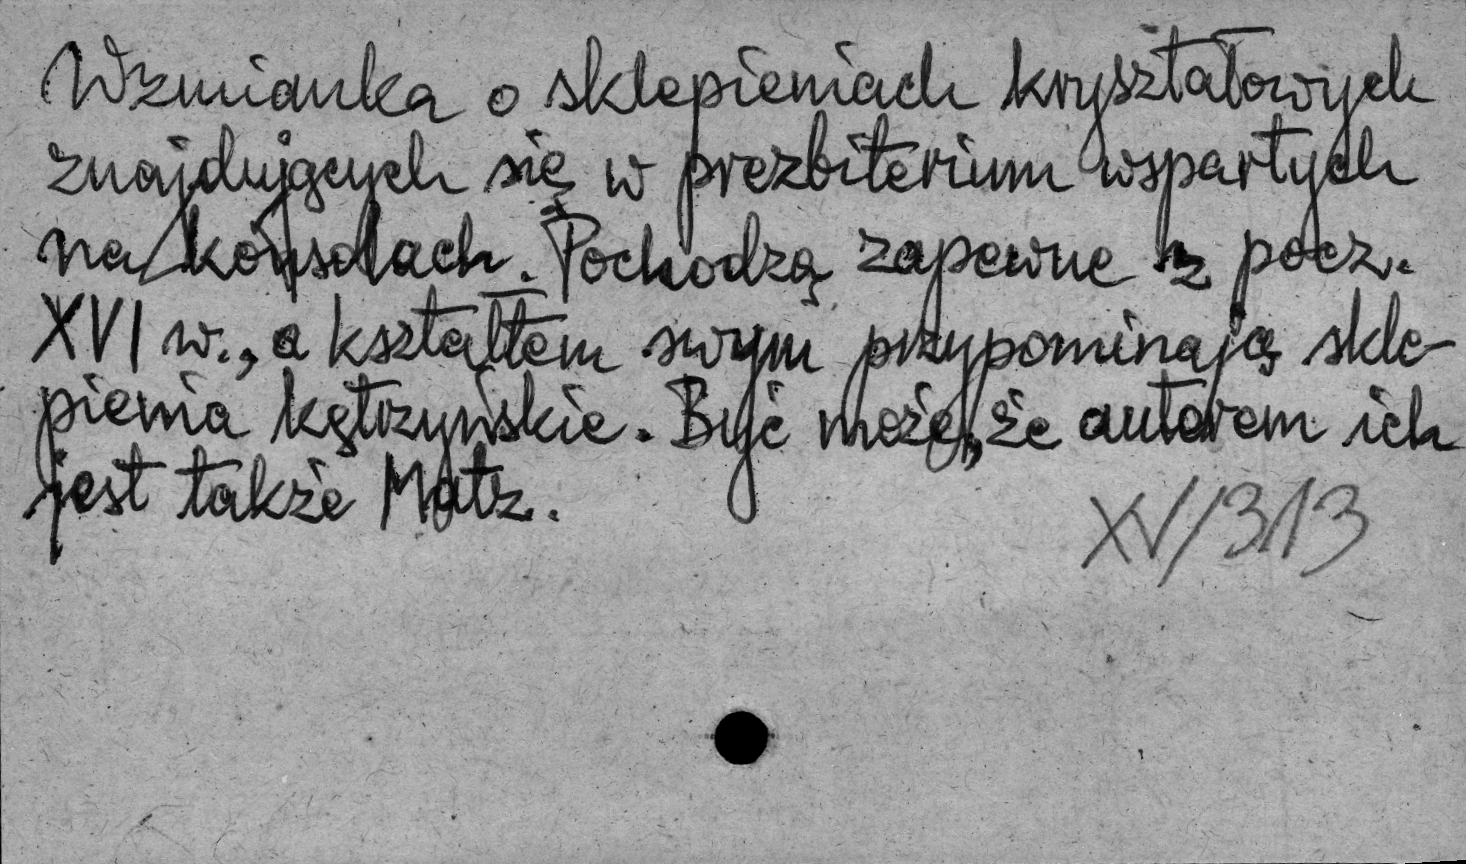 Wzmianka o sklepieniach kryształowych
znajdujących się w prezbiterium wspartych
na konsolach. Pochodzą zapewne z pocz.
XVI w., a kształtem swym przypominają skle-
pienia kętrzyńskie. Być może, że autorem ich
jest także Matz.
XV/313